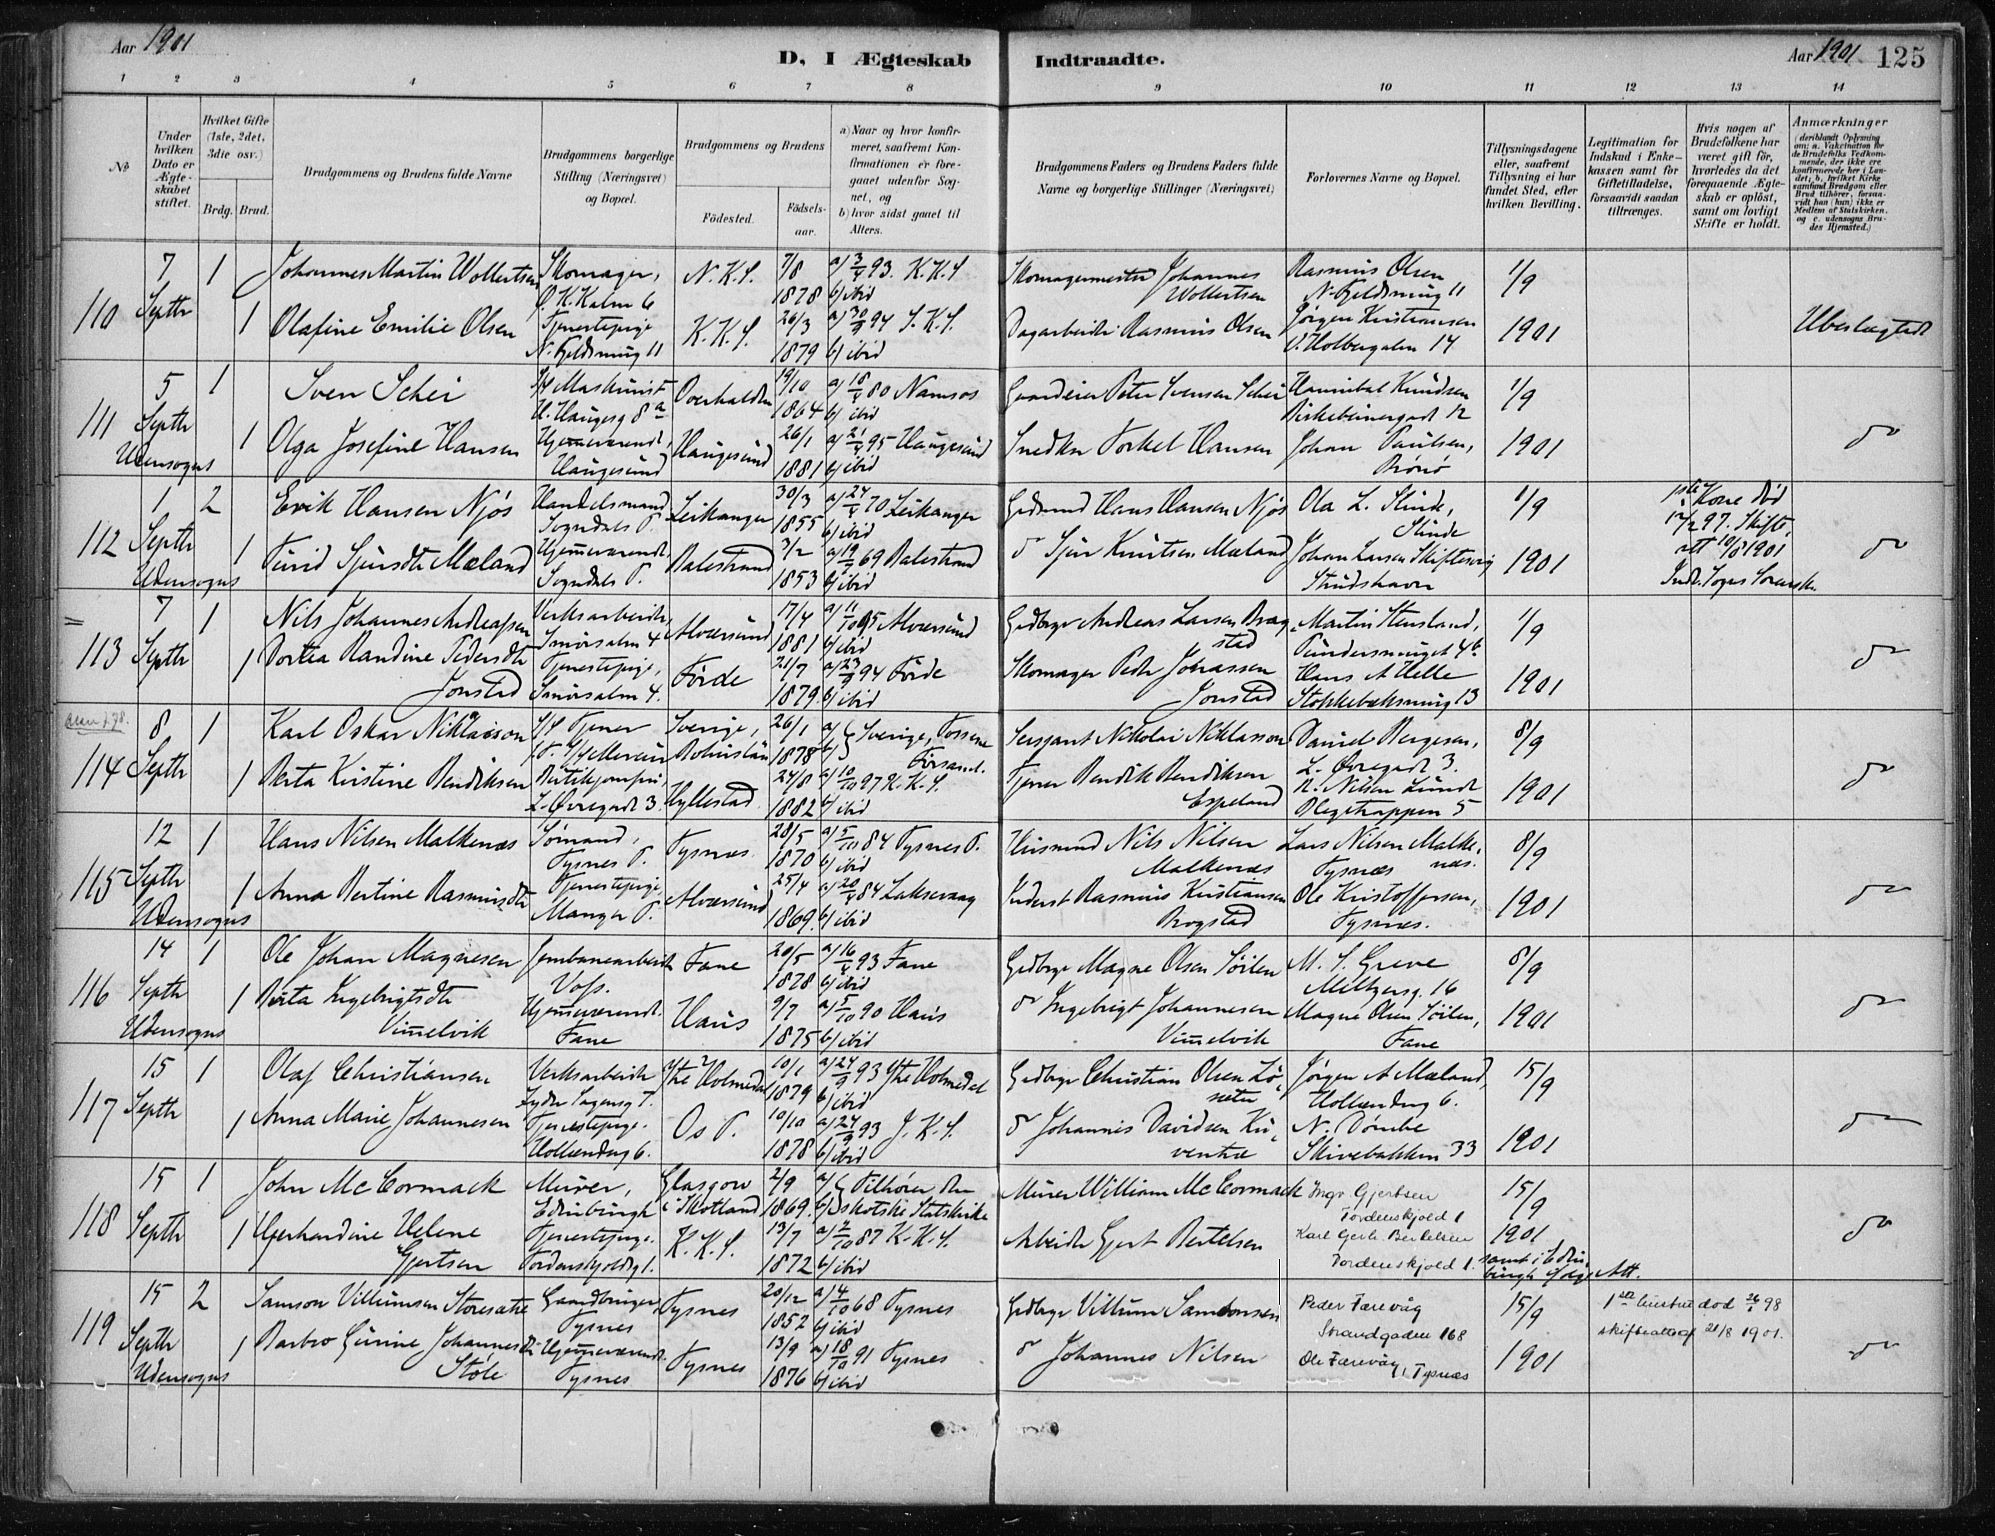 Aar 1901
D, I Ægteskab Indtraadte.
Aar 1901 125
1 2 3 4 5 6 7 8 9 10 11 12 13 14
№
Under hvilken Dato er Ægteskabet stiftet.
Hvilket Gifte (1ste, 2det, 3die osv.)
Brdg. Brud.
Brudgommens og Brudens fulde Navne
Brudgommens borgerlige Stilling (Næringsvei) og Bopæl.
Brudgommens og Brudens
Födested. Födsels-aar.
a) Naar og hvor konfirmeret, saafremt Konfirmationen er foregaaet udenfor Sognet, og
b) hvor sidst gaaet til Alters.
Brudgommens Faders og Brudens Faders fulde Navne og borgerlige Stillinger (Næringsvei)
Forlovernes Navne og Bopæl.
Tillysningsdagene eller, saafremt Tillysning ei har fundet Sted, efter hvilken Bevilling.
Legitimation for Indskud i Enkekassen samt for Giftetilladelse, forsaavidt saadan tiltrænges.
Hvis nogen af Brudefolkene har været gift för, hvorledes da det foregaaende Ægteskab er oplöst, samt om lovligt Skifte er holdt.
Anmærkninger (deriblandt Oplysning om: a. Vakcination for de Brudefolks Vedkommende, der ikke ere konfirmerede her i Landet; b. hvilket Kirkesamfund Brudgom eller Brud tilhörer, forsaavidt han (hun) ikke er Medlem af Statskirken, og c. udensogns Brudes Hjemsted.)
110 7 Septbr 1 Johannes Martin Wollertsen Skomager, Ø. K. Kalm 6 N. K. S. 7/8 1878 a) 3/4 93. K. K. S b) ibid Skomagermester Johannes Wollertsen Rasmus Olsen N. Fjeldsmug 11 1/9
1 Olafine Emilie Olsen Tjenestepige N. Fjeldsmug 11 K. K. S. 26/3 1879 a) 30/9 94 J. K. S. b) ibid Dagarbeider Rasmus Olsen Jørgen Kristiansen V. Holbergalm 14 1901 Ubeslægtede
111 5 Septbr Udensogns 1 Sven Schei Maskinist H. Haugesg 8a Overhalden 19/10 1864 a) 18/4 80 Namsos b) ibid Gaardeier Peter Svensen Schei Hannibal Knudsen Birkebeinergad 12 1/9
1 Olga Josefine Hansen Hjemmeværende, Haugesund Haugesund 26/1 1881 a) 21/4 95 Haugesund b) ibid Snedker Torkel Hansen Johan Paulsen, Brönö 1901 do
112 1 Septbr Udensogns 2 Erik Hansen Njøs Handelsmand Sogndals P. Leikanger 30/3 1855 a) 24/4 70 Leikanger b) ibid Grdmnd Hans Hansen Njøs Ola L. Slinde, Slinde 1/9 1ste Kone død 12/2 97. Skifte att 10/8 1901 Indr. Sogns Sorenskr.
1 Turid Sjursdtr Mæland Hjemmeværende. Sogndals P. Balestrand 3/2 1853 a) 19/9 69 Balestrand b) ibid do Sjur Knutsen Mæland Johan Larsen Skiftesvig Strudshavn 1901 do
113 7 Septbr 1 Nils Johannes Andreassen Verksarbeider, Smörsalm 4 Alversund 17/4 1881 a) 11/10 95 Alversund b) ibid Grdbrgr Andreas Larsen Bragstad Martin Stensland, Tundersmuget 4b 1/9
1 Dortea Randine Pedersdtr Jonstad Tjenestepige, Smörsalm 4. Førde 21/7 1879 a) 23/9 94 Førde b) ibid Skomager Pedr Johassen Jonstad Hans A Helle Stokkebæksmug 13 1901 do
114 8 Septbr 1 Karl Oskar Niklasson Tjener Sverige, Bohuslän 26/1 1878 a) b) Sverige, Tossene Församl. Sersjant Nikolai Niklasson Daniel Bergesen, L. Øvregade 3. 8/9
1 Berta Kristine Bendiksen Butikjomfru, L. Øvregade 3. Hyllestad 24/8 1882 a) 10/10 97 K. K. S. b) ibid Tjener Bendik Bendiksen Espeland R. Nilsen Lunde Blegetrappen 5 1901 do
115 12 Septbr Udensogns 1 Hans Nilsen Malkenæs Sømand, Tysnes P. Tysnæs 28/5 1870 a) 5/10 84 Tysnes P. b) ibid Husmnd Nils Nilsen Malkenæs Lars Nilsen Malkenæs. Tysnæs 8/9
1 Anna Bertine Rasmusdtr Tjenestepige, Manger P. Alversund 25/4 1869. a) 20/4 84 Laksevaag b) ibid Inderst Rasmus Kristiansen Brogstad Ole Kristoffersen, Tysnæs. 1901 do
116 14 Septbr Udensogns 1 Ole Johan Magnesen Jernbanearbeider Voss. Fane 20/5 1878 a) 16/4 93 Fane b) ibid Grdbrgr Magne Olsen Söilen M. S. Greve Meltzersg. 16 8/9
1 Berta Ingebrigtsdtr Vimmelvik Hjemmeværende. Fane Haus 9/7 1875 a) 5/10 90 Haus b) ibid do Ingebrigt Johannesen Vimmelvik Magne Olsen Söilen, Fane 1901 do
117 15 Septbr 1 Olaf Christiansen Verksarbeider Ytre Holmedal 10/1 1879 a) 24/9 93 Ytre Holmedal b) ibid Grdbrgr Christian Olsen Lö- Jørgen A Mæland, Hollendrg 6. 15/9
1 Anna Marie Johannesen Tjenestepige. Hollendrg 6. Os P. 10/10 1878 a) 24/9 93 J. K. S. b) ibid do Johannes Davidsen Kuventræ N. Dömbe Skivebakken 33 1901 do
118 15 Septbr 1 John Mc Cormack Murer, Edinburgh Glasgow i Skotland 2/9 1869. a) b) Tilhörer den skotske Statskirke Murer William Mc Cormack Ingv Gjertsen Tordenskjold 1 15/9
1 Gjerhardine Helene Gjertsen Tjenestepige. Tordenskjoldg 1. K. K. S. 13/7 1872 a) 2/10 87 K. K. S. b) ibid Arbeider Gjert Bertelsen Karl Gerh Bertelsen Tordenskjold 1. 1901 samt i Edinburgh ifölge Att. do
119 15 Septbr Udensogns 2 Samson Villumsen Storesætre Gaardbruger, Tysnes Tysnes 20/12 1852 a) 4/10 68 Tysnes b) ibid Grdbrgr Villum Samsonsen Peder Færevåg Strandgaden 168 15/9 1ste hustru død 26/1 98 skifteattest 21/8 1901.
1 Barbro Gurine Johannesdtr Stole Hjemmeværende. Tysnes Tysnes 13/9 1876 a) 18/10 91 Tysnes b) ibid do Johannes Nilsen Ole Færevåg, Tysnæs 1901 do